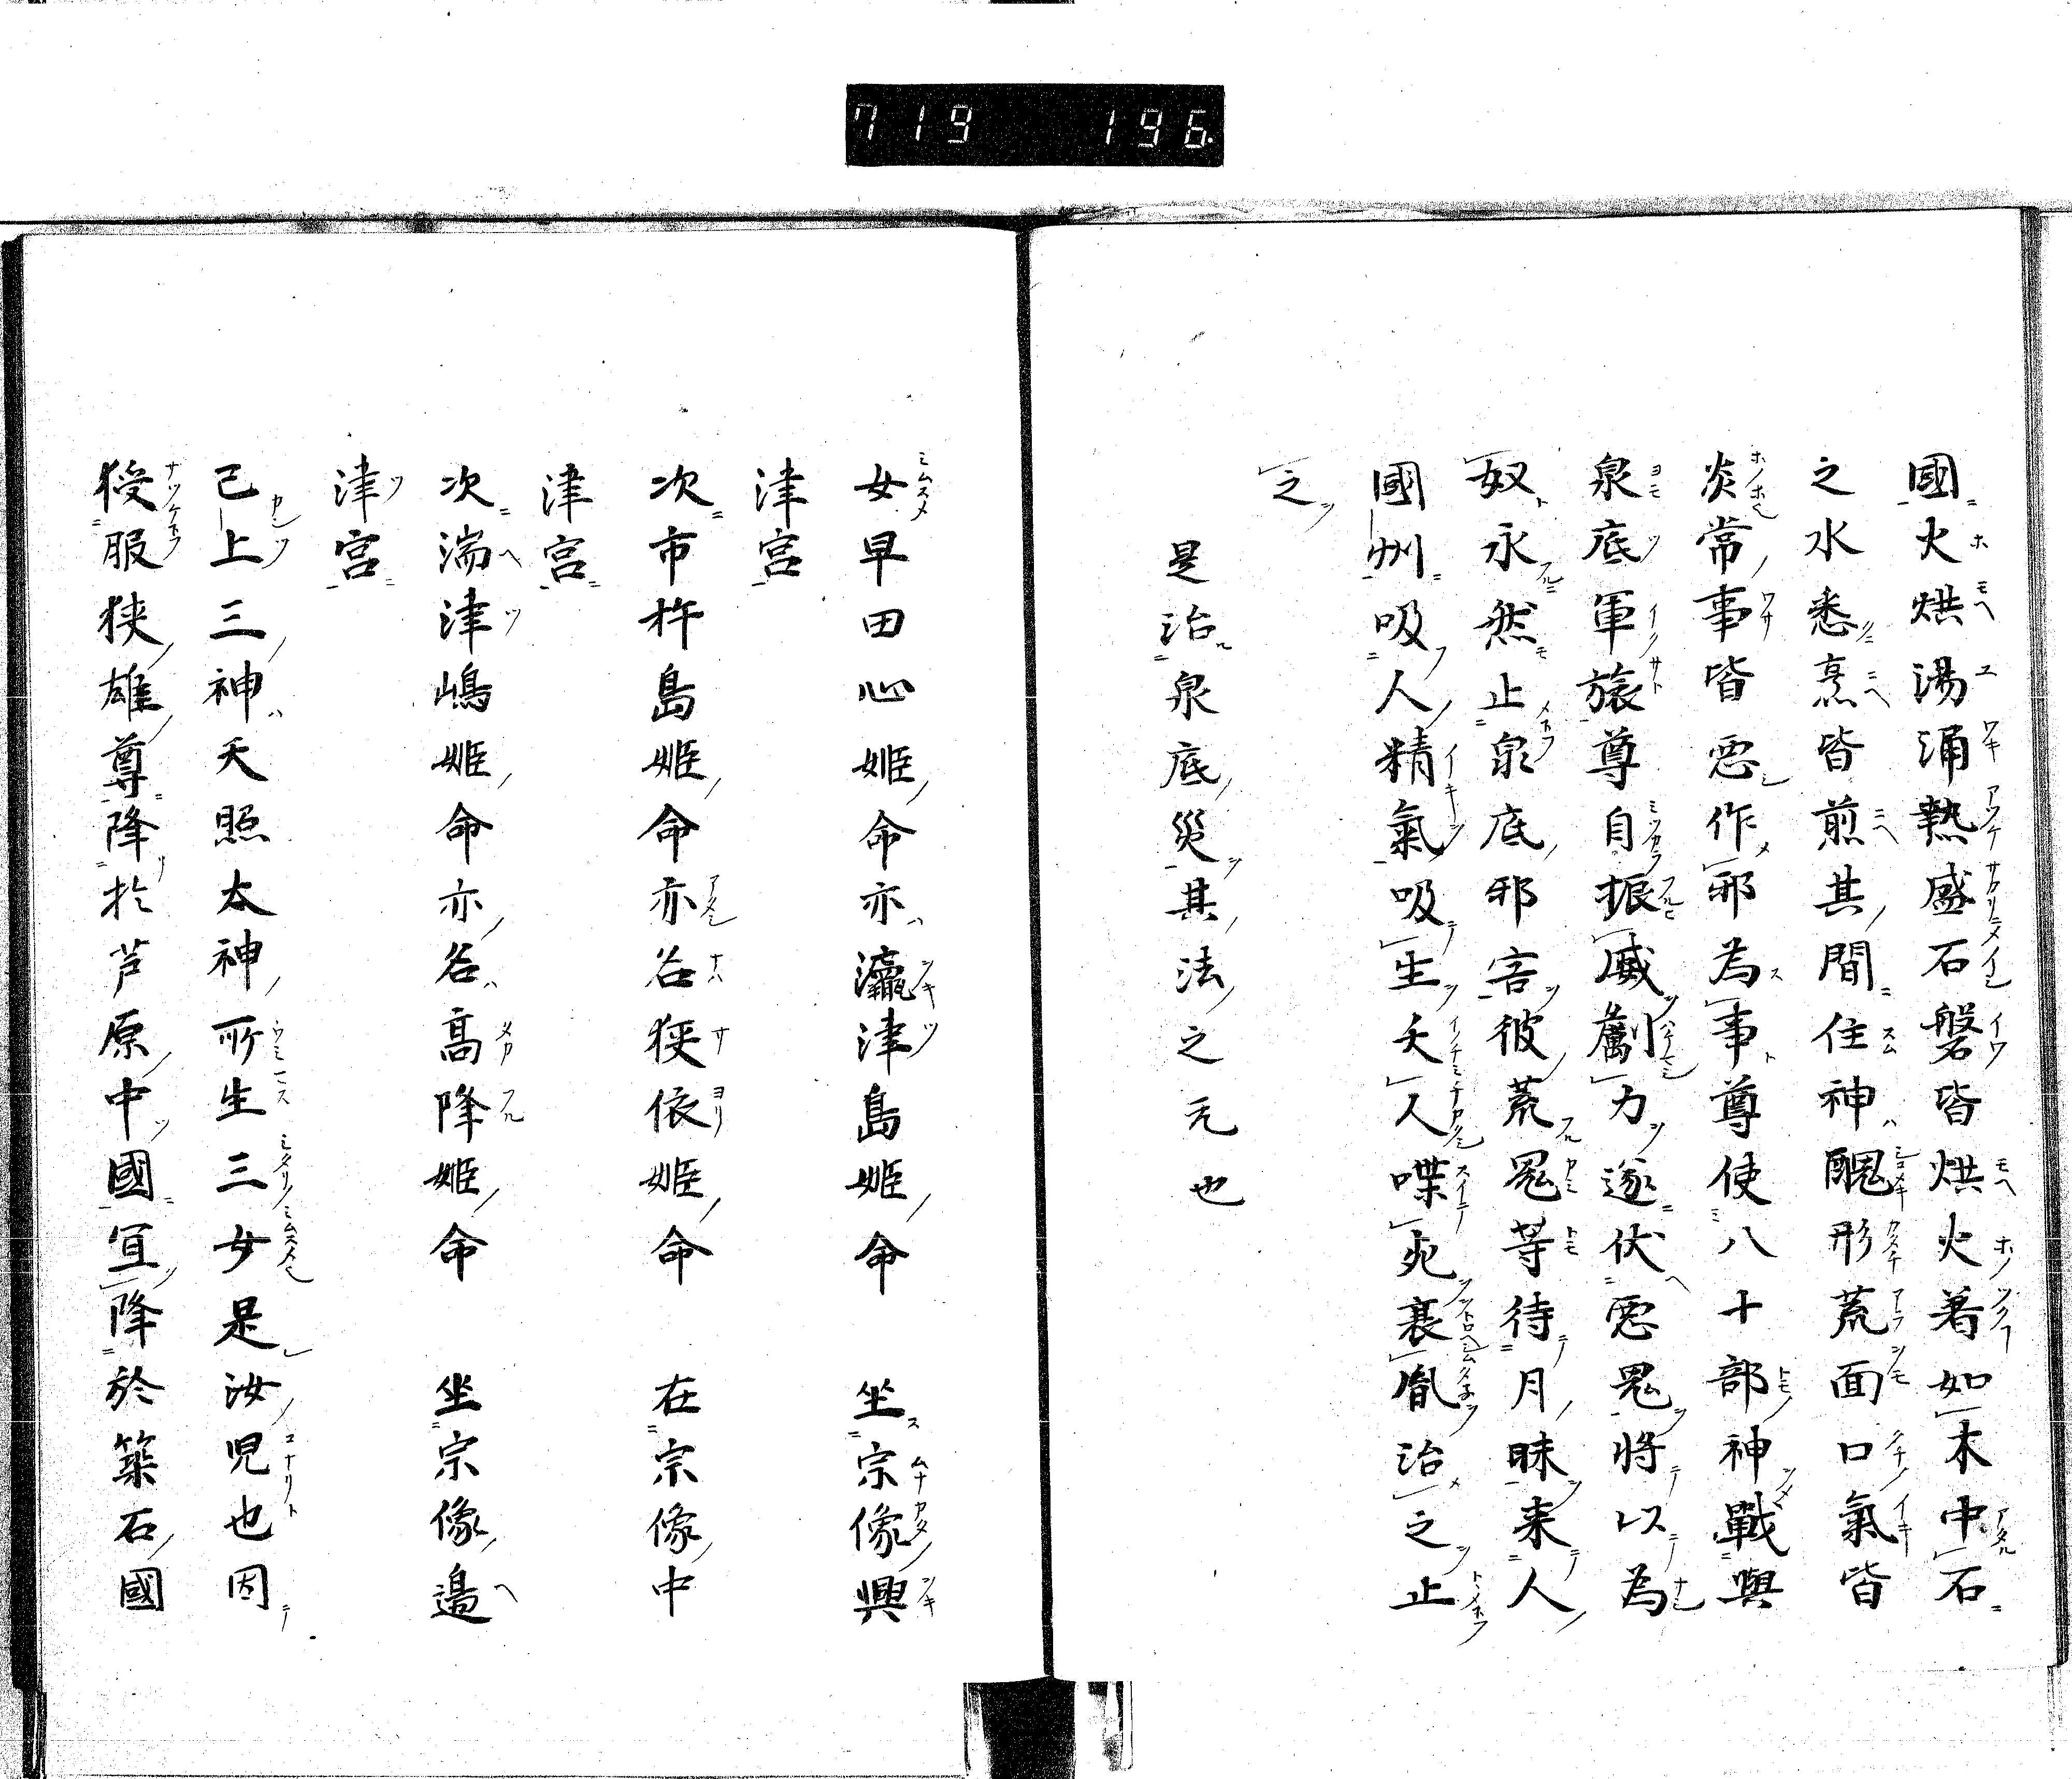 719 196.
國火烘湯涌熱盛石磐皆烘火著如木中石
之水悉烹皆煎其間住神醜形荒面口氣皆
炎常事皆惡作邪為事尊使八十部神戰與
泉底軍旅尊自振威勵力遂伏惡鬼將以為
奴永然止泉底邪害彼荒鬼等待月昧来人
國州吸人精氣吸生夭人喋死衰胤治之止
之
是治泉底災其法之元也
女早田心姫命亦瀛津島姫命 坐宗像興
津宮
次市杵島姫命亦名狭依姫命 在宗像中
津宮
次湍津嶋姫命亦名高降姫命 坐宗像邉
津宮
已上三神天照太神所生三女是汝児也因
授服狭雄尊降於芦原中國宜降於築石國